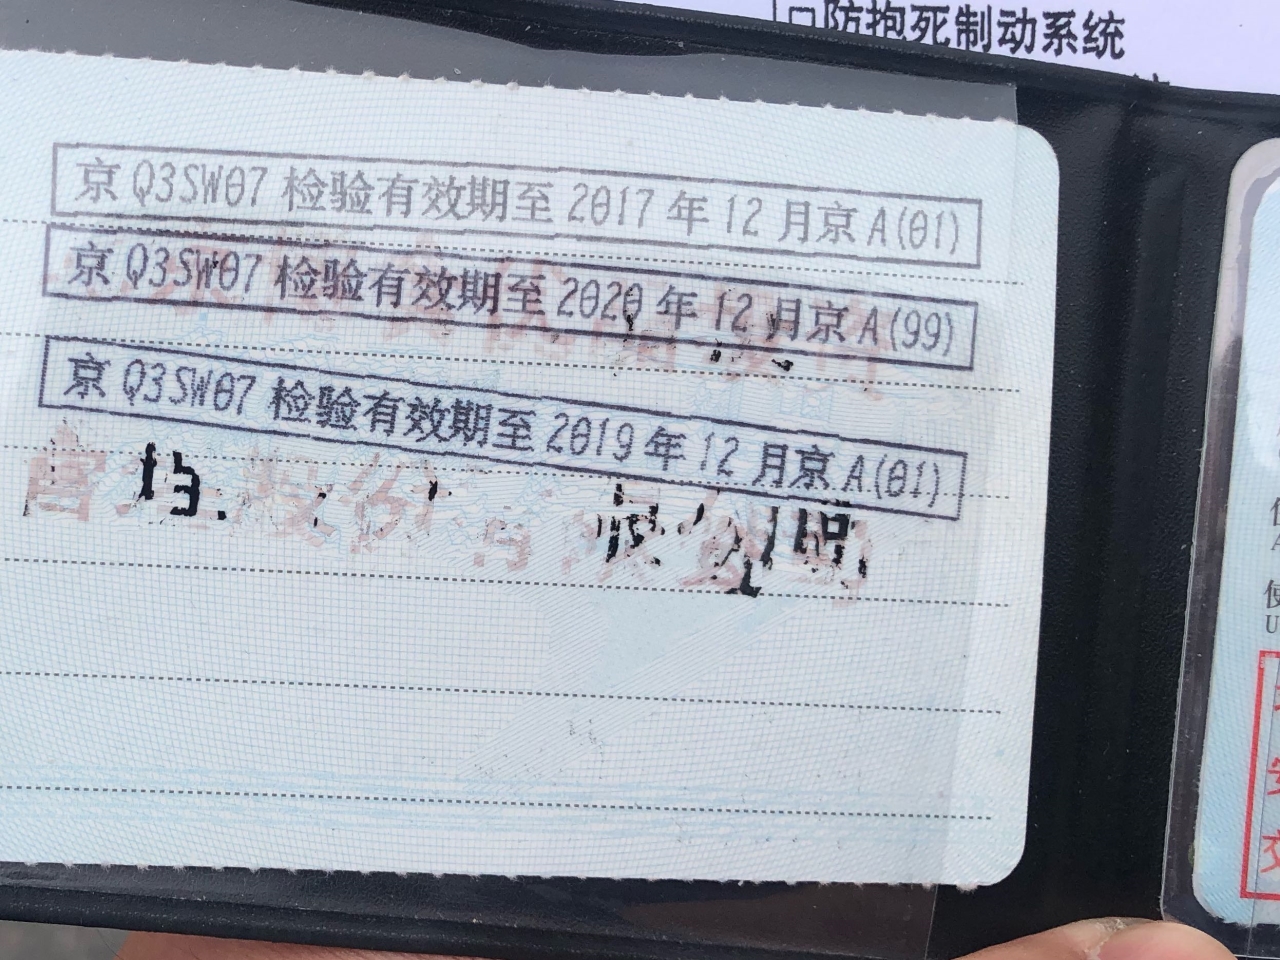 防抱死制动系统
京Q3SW07 检验有效期至 2017 年 12 月京A(01)
京Q3SW07 检验有效期至 2020 年 12 月京A(99)
京Q3SW07 检验有效期至 2019 年 12 月京A(01)
使
U